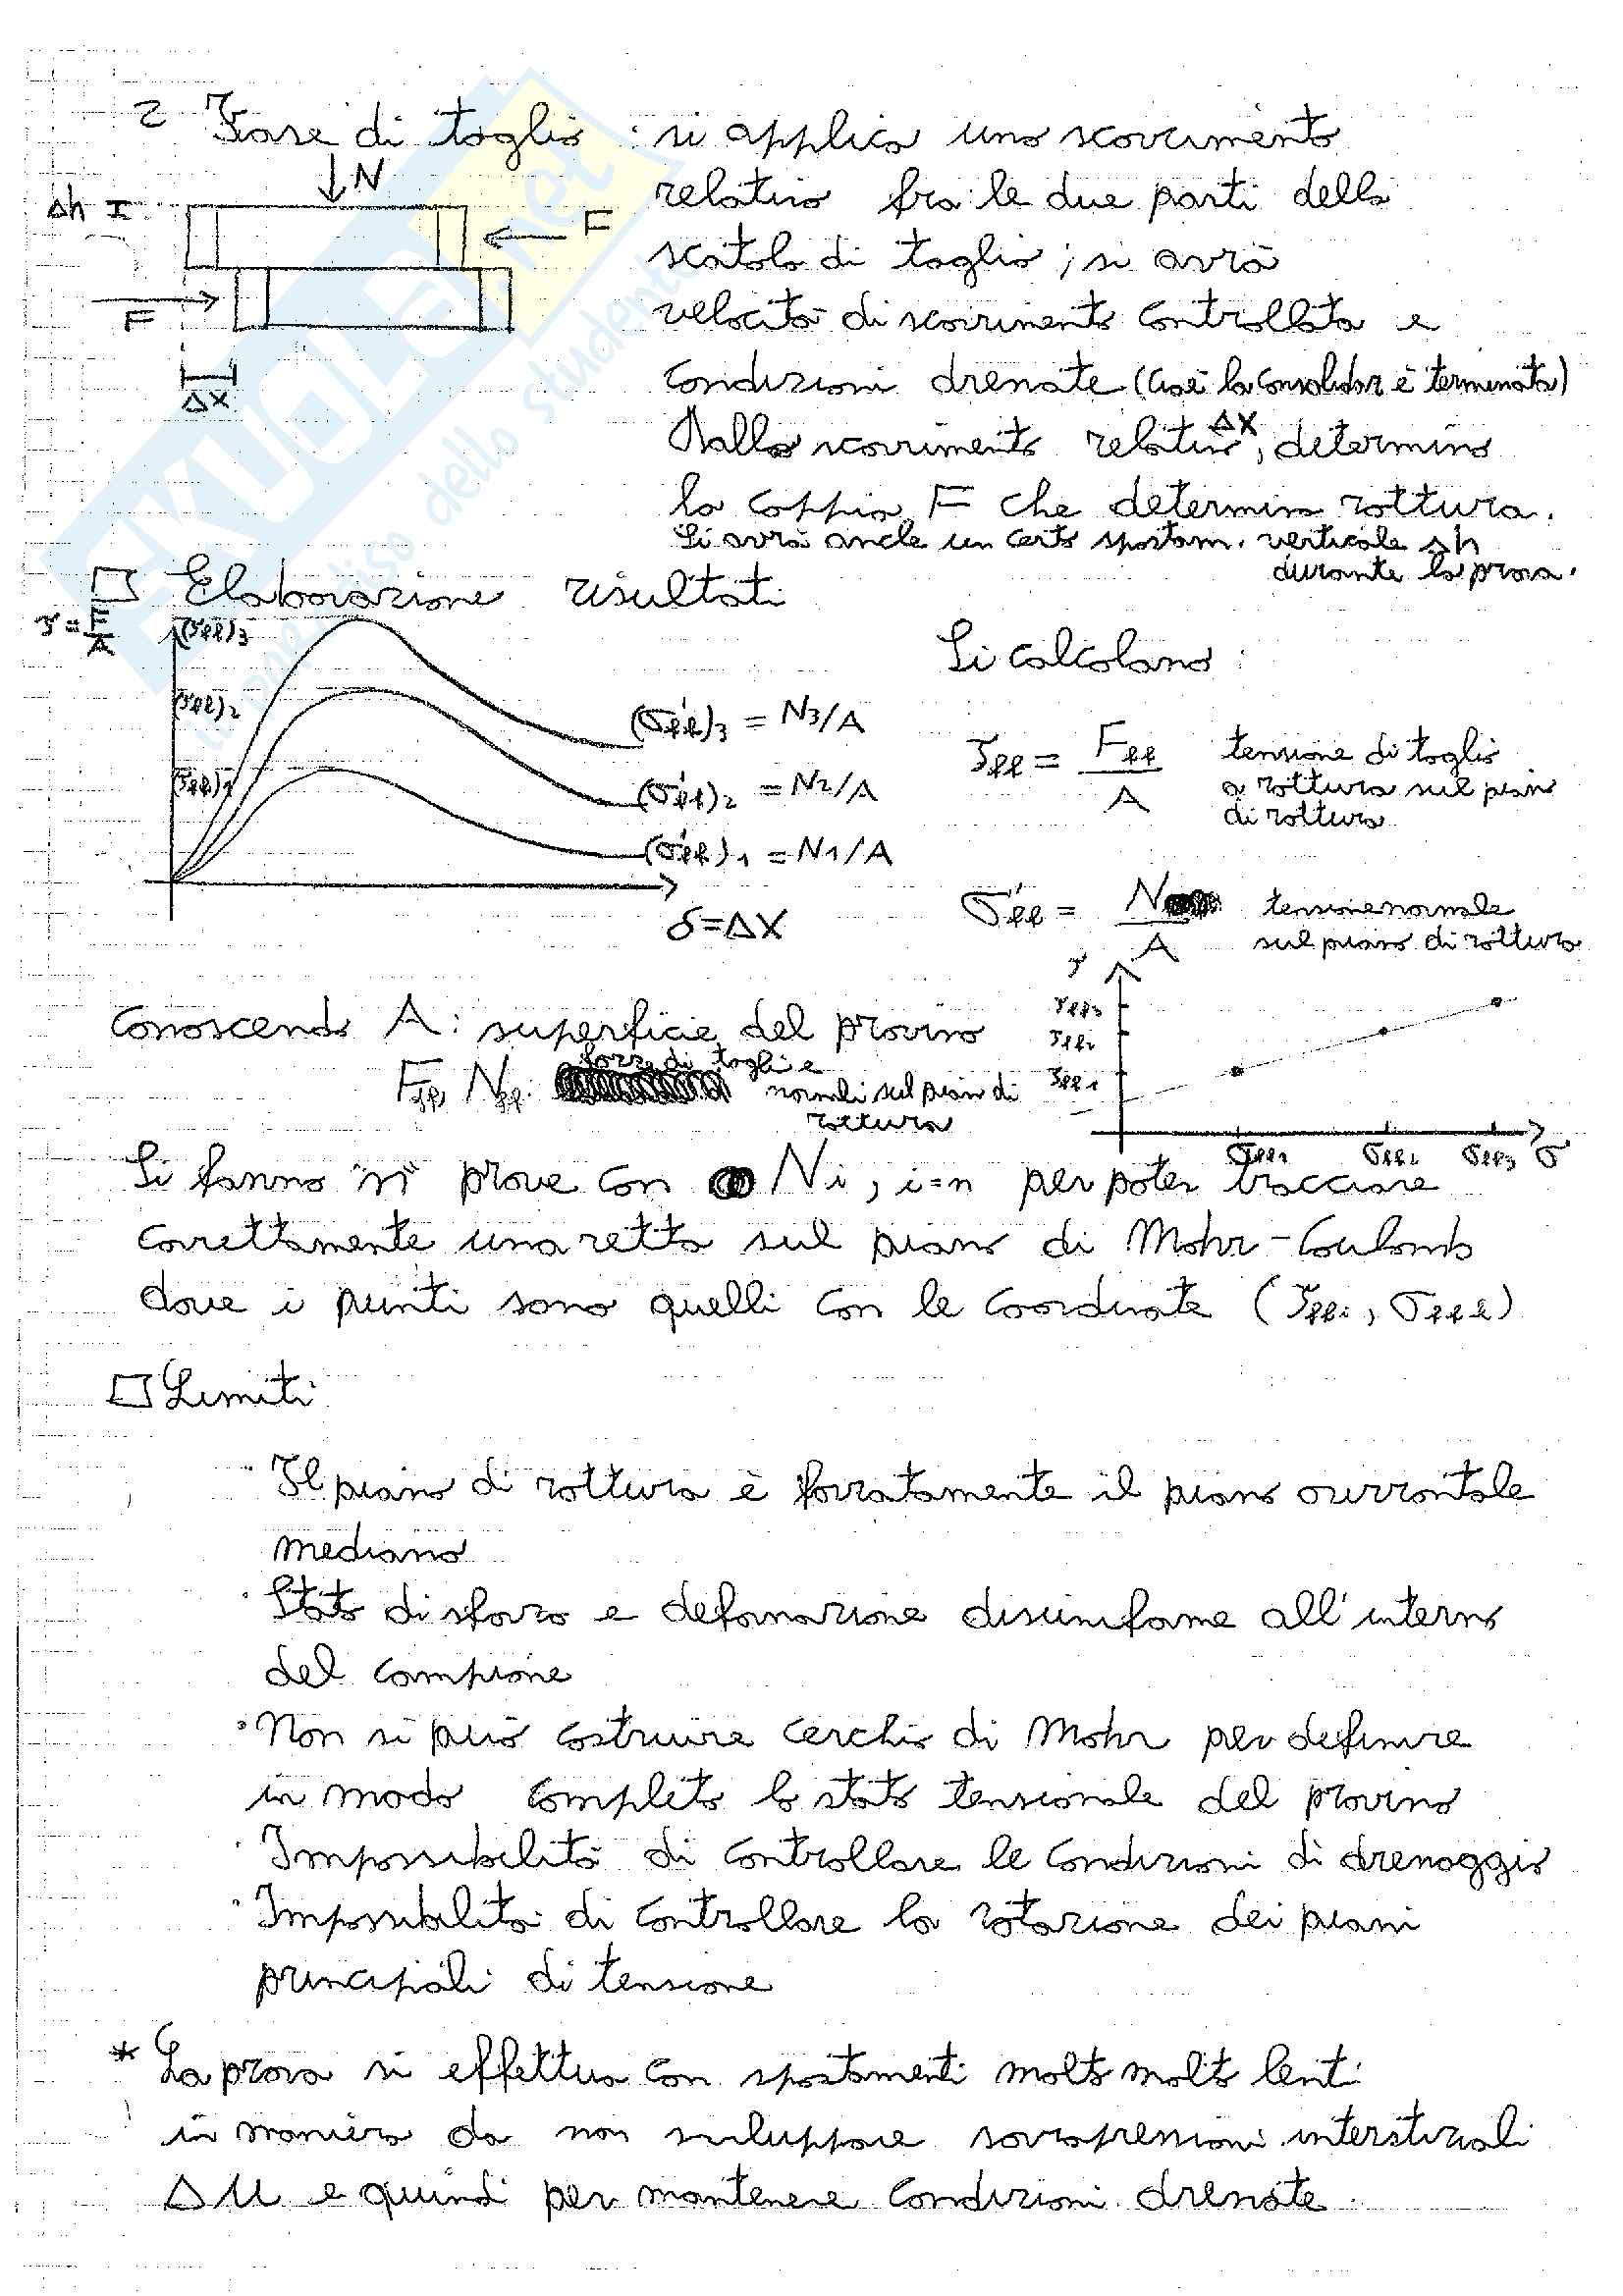 2 Fase di taglio : si applica uno scorrimento
relativo fra le due parti della
scatola di taglio; si avrà
velocità di scorrimento controllata e
condizioni drenate (cioè la consolidaz è terminata)
Dallo scorrimento relativo ΔX, determino
la coppia F che determina rottura.
Si avrà anche un certo spostam. verticale Δh
durante la prova.
N
Δh
F
F
ΔX
□ Elaborazione risultati
τ = F/A
(τff)3
(τff)2
(τff)1
(σ'ff)3 = N3/A
(σ'ff)2 = N2/A
(σ'ff)1 = N1/A
δ=ΔX
Si calcolano:
τff = Fff/A tensione di taglio
a rottura sul piano
di rottura
σ'ff = N/A tensione normale
sul piano di rottura
τ
τff3
τff2
τff1
σff1 σff2 σff3 σ
Conoscendo A: superficie del provino
Fff, Nff: forze di taglio e
normali sul piano di
rottura
Si fanno "n" prove con Ni, i=n per poter tracciare
correttamente una retta sul piano di Mohr-Coulomb
dove i punti sono quelli con le coordinate (τffi, σffi)
□ Limiti
· Il piano di rottura è forzatamente il piano orizzontale
mediano
· Stato di sforzo e deformazione disuniforme all'interno
del campione
· Non si può costruire cerchio di Mohr per definire
in modo completo lo stato tensionale del provino
· Impossibilità di controllare le condizioni di drenaggio
· Impossibilità di controllare la rotazione dei piani
principali di tensione
* La prova si effettua con spostamenti molto molto lenti
in maniera da non sviluppare sovrapressioni interstiziali
Δu e quindi per mantenere condizioni drenate.